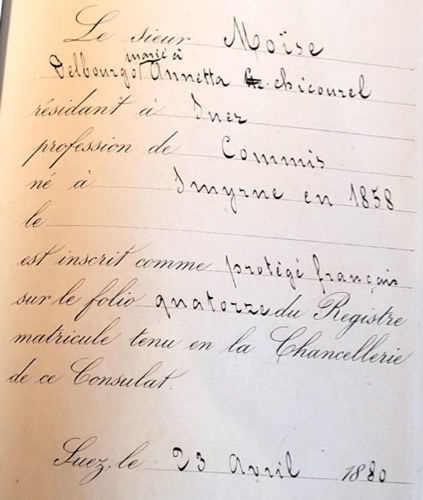 Le sieur Moïse
marié à
Delbourgo Annetta Chicourel
résidant à Suez
profession de Commis
né à Smyrne en 1858
le
est inscrit comme protégé français
sur le folio quatorze du Registre
matricule tenu en la Chancellerie
de ce Consulat.
Suez, le 23 avril 1880